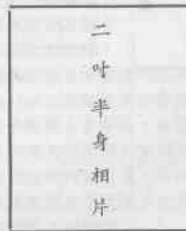 二吋半身相片